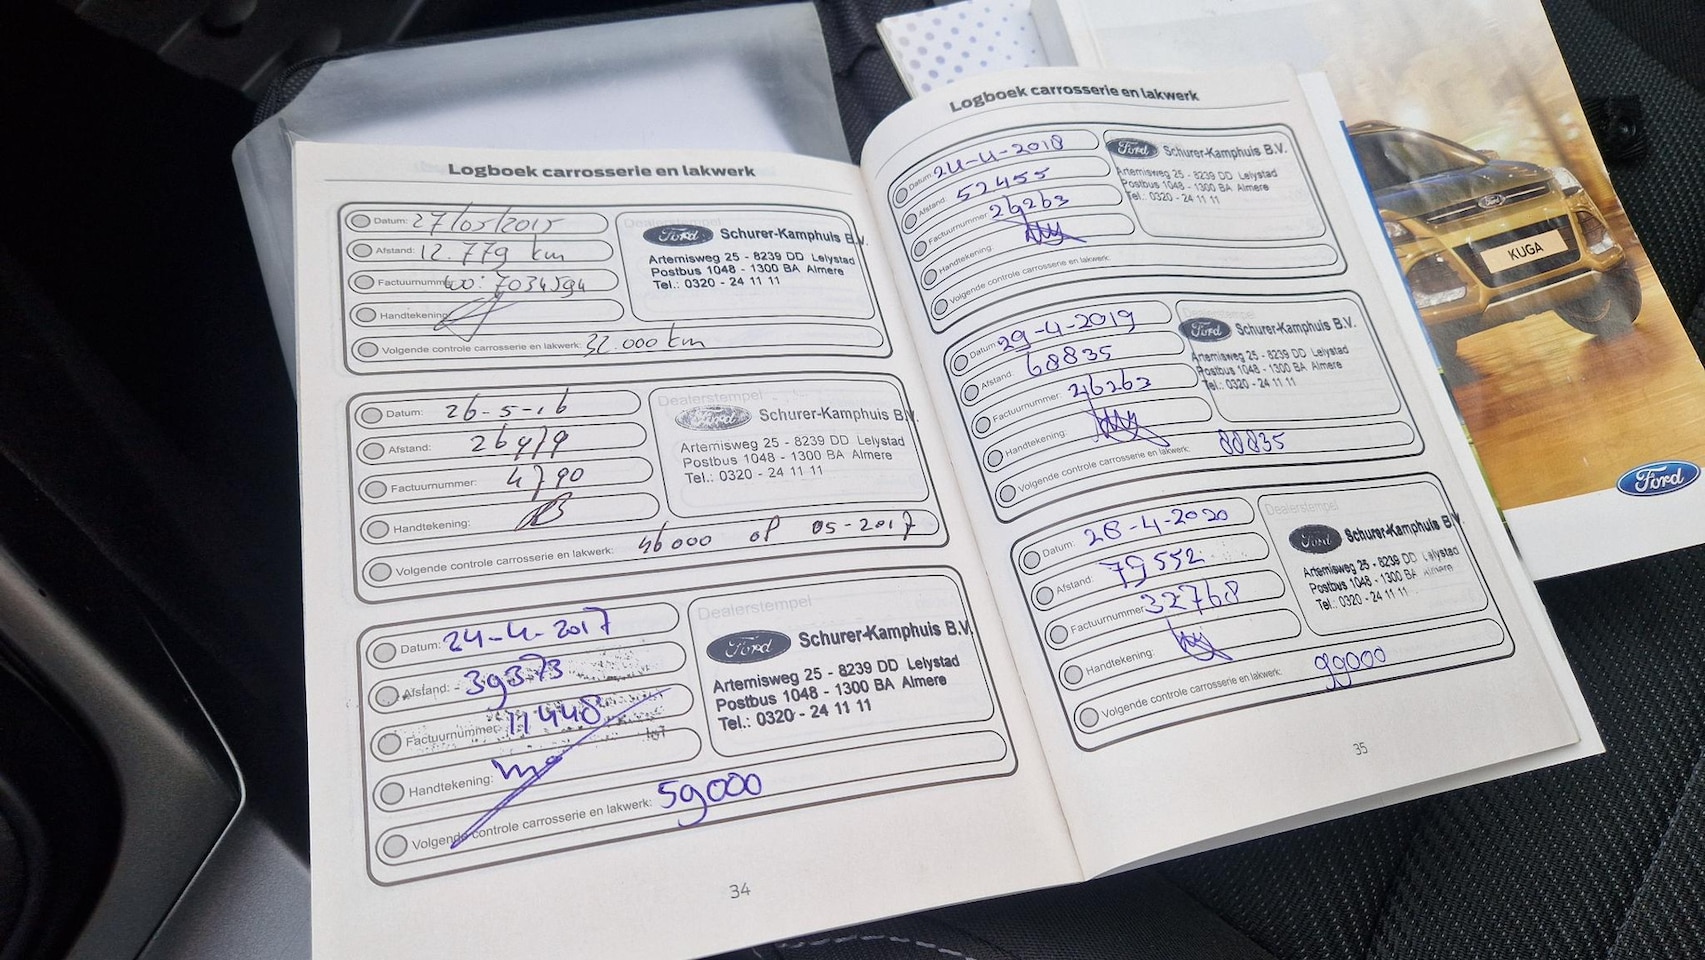 Logboek carrosserie en lakwerk
Datum: 27/05/2015
Afstand: 12.779 km
Factuurnummer: 7034594
Handtekening:
Volgende controle carrosserie en lakwerk: 32.000 km
Dealerstempel
Ford Schurer-Kamphuis B.V.
Artemisweg 25 - 8239 DD Lelystad
Postbus 1048 - 1300 BA Almere
Tel.: 0320 - 24 11 11
Datum: 26-5-16
Afstand: 26479
Factuurnummer: 4790
Handtekening:
Volgende controle carrosserie en lakwerk: 46000 of 05-2017
Dealerstempel
Ford Schurer-Kamphuis B.V.
Artemisweg 25 - 8239 DD Lelystad
Postbus 1048 - 1300 BA Almere
Tel.: 0320 - 24 11 11
Datum: 24-4-2017
Afstand: 39373
Factuurnummer: 11448
Handtekening:
Volgende controle carrosserie en lakwerk: 59000
Dealerstempel
Ford Schurer-Kamphuis B.V.
Artemisweg 25 - 8239 DD Lelystad
Postbus 1048 - 1300 BA Almere
Tel.: 0320 - 24 11 11
34
Logboek carrosserie en lakwerk
Datum: 24-4-2018
Afstand: 52455
Factuurnummer: 26263
Handtekening:
Volgende controle carrosserie en lakwerk:
Ford Schurer-Kamphuis B.V.
Artemisweg 25 - 8239 DD Lelystad
Postbus 1048 - 1300 BA Almere
Tel.: 0320 - 24 11 11
Datum: 29-4-2019
Afstand: 68835
Factuurnummer: 26263
Handtekening:
Volgende controle carrosserie en lakwerk: 88835
Dealerstempel
Ford Schurer-Kamphuis B.V.
Artemisweg 25 - 8239 DD Lelystad
Postbus 1048 - 1300 BA Almere
Tel.: 0320 - 24 11 11
Datum: 28-4-2020
Afstand: 79552
Factuurnummer: 32768
Handtekening:
Volgende controle carrosserie en lakwerk: 99000
Dealerstempel
Ford Schurer-Kamphuis B.V.
Artemisweg 25 - 8239 DD Lelystad
Postbus 1048 - 1300 BA Almere
Tel.: 0320 - 24 11 11
35
Ford
KUGA
Ford